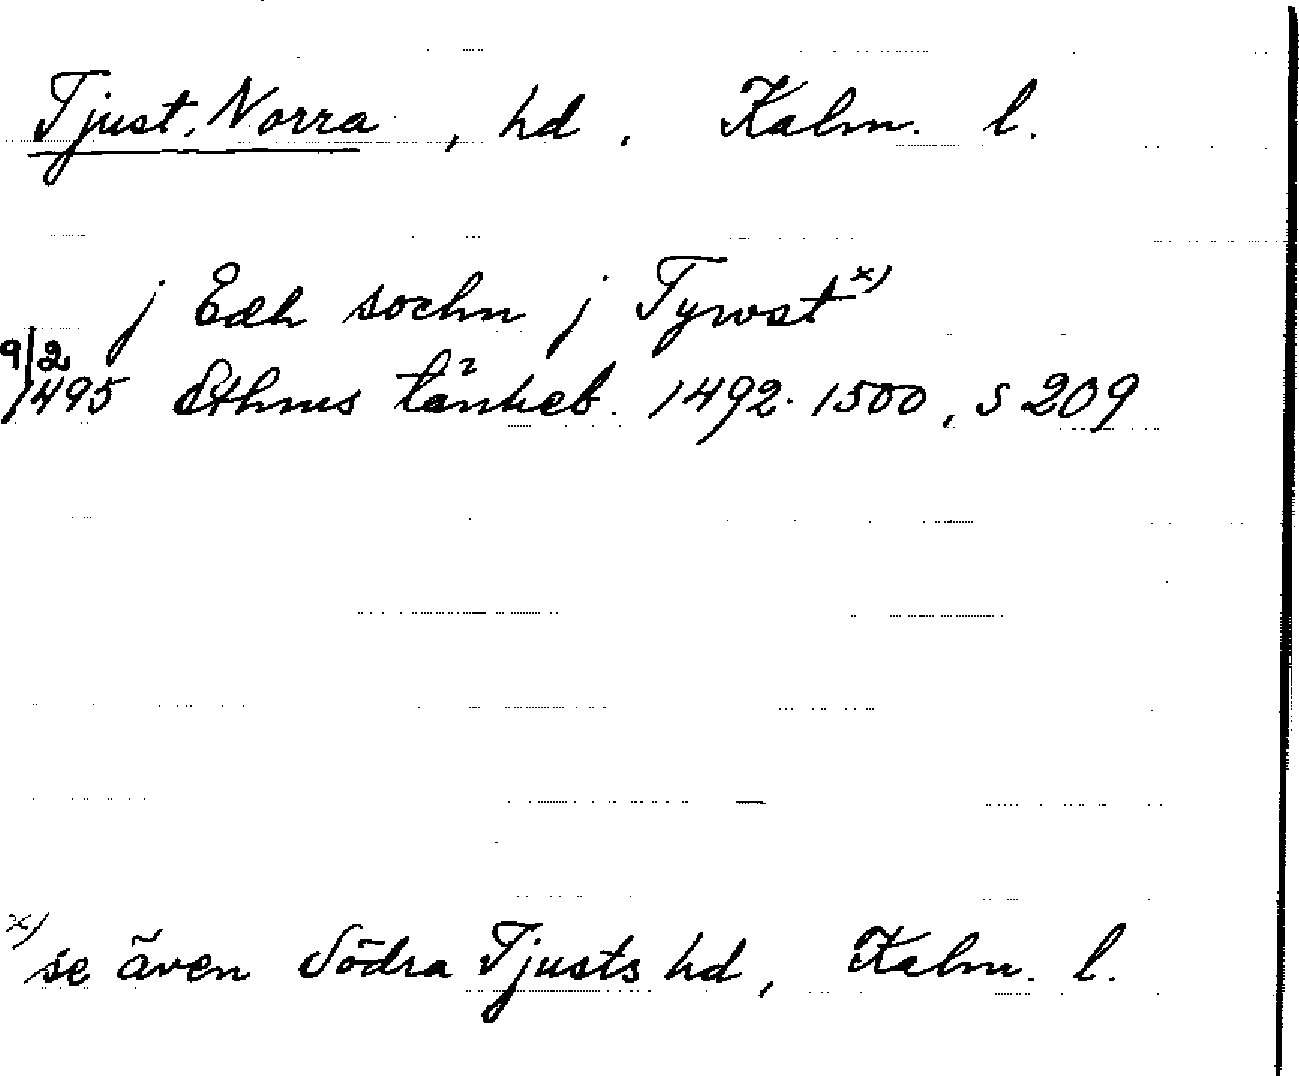 Tjust, Norra, hd. Kalm. l.
j Edh sochn j Tywst x)
9/2 1495 Sthms tänkeb. 1492-1500, s 209
x) se även Södra Tjusts hd, Kalm. l.